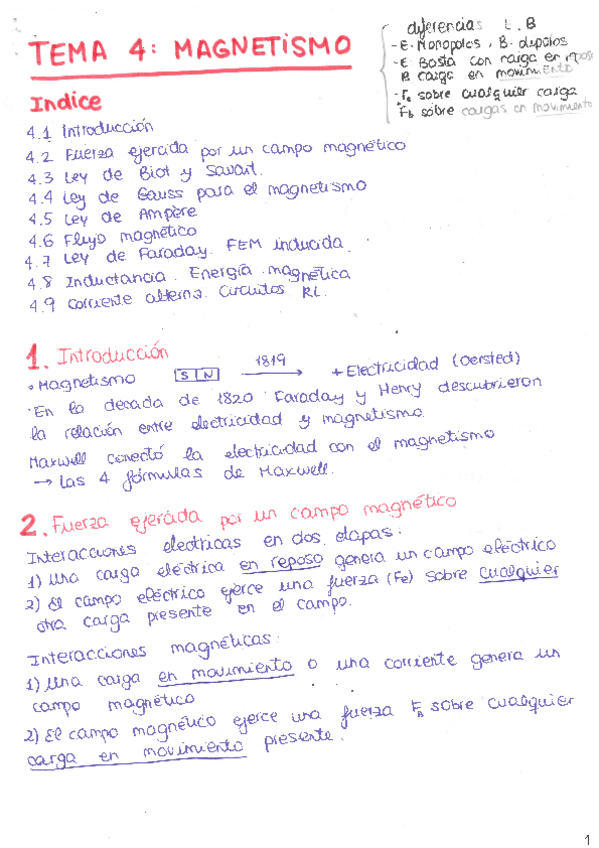 TEMA 4: MAGNETISMO
diferencias E, B
- E. Monopolos, B. dipolos
- E Basta con carga en reposo
B carga en movimiento
- Fe sobre cualquier carga
Fb sobre cargas en movimiento
Indice
4.1 Introducción
4.2 Fuerza ejercida por un campo magnético
4.3 Ley de Biot y Savart.
4.4 Ley de Gauss para el magnetismo
4.5 Ley de Ampère
4.6 Flujo magnético
4.7 Ley de Faraday. FEM inducida
4.8 Inductancia. Energía magnética
4.9 Corriente alterna. Circuitos RL.
1. Introducción
• Magnetismo S N 1819 + Electricidad (Oersted)
• En la decada de 1820 Faraday y Henry descubrieron
la relación entre electricidad y magnetismo.
Maxwell conectó la electricidad con el magnetismo
→ Las 4 fórmulas de Maxwell.
2. Fuerza ejercida por un campo magnético
Interacciones electricas en dos etapas:
1) Una carga eléctrica en reposo genera un campo eléctrico
2) El campo eléctrico ejerce una fuerza (Fe) sobre cualquier
otra carga presente en el campo.
Interacciones magnéticas:
1) Una carga en movimiento o una corriente genera un
campo magnético
2) El campo magnético ejerce una fuerza FB sobre cualquier
carga en movimiento presente.
1